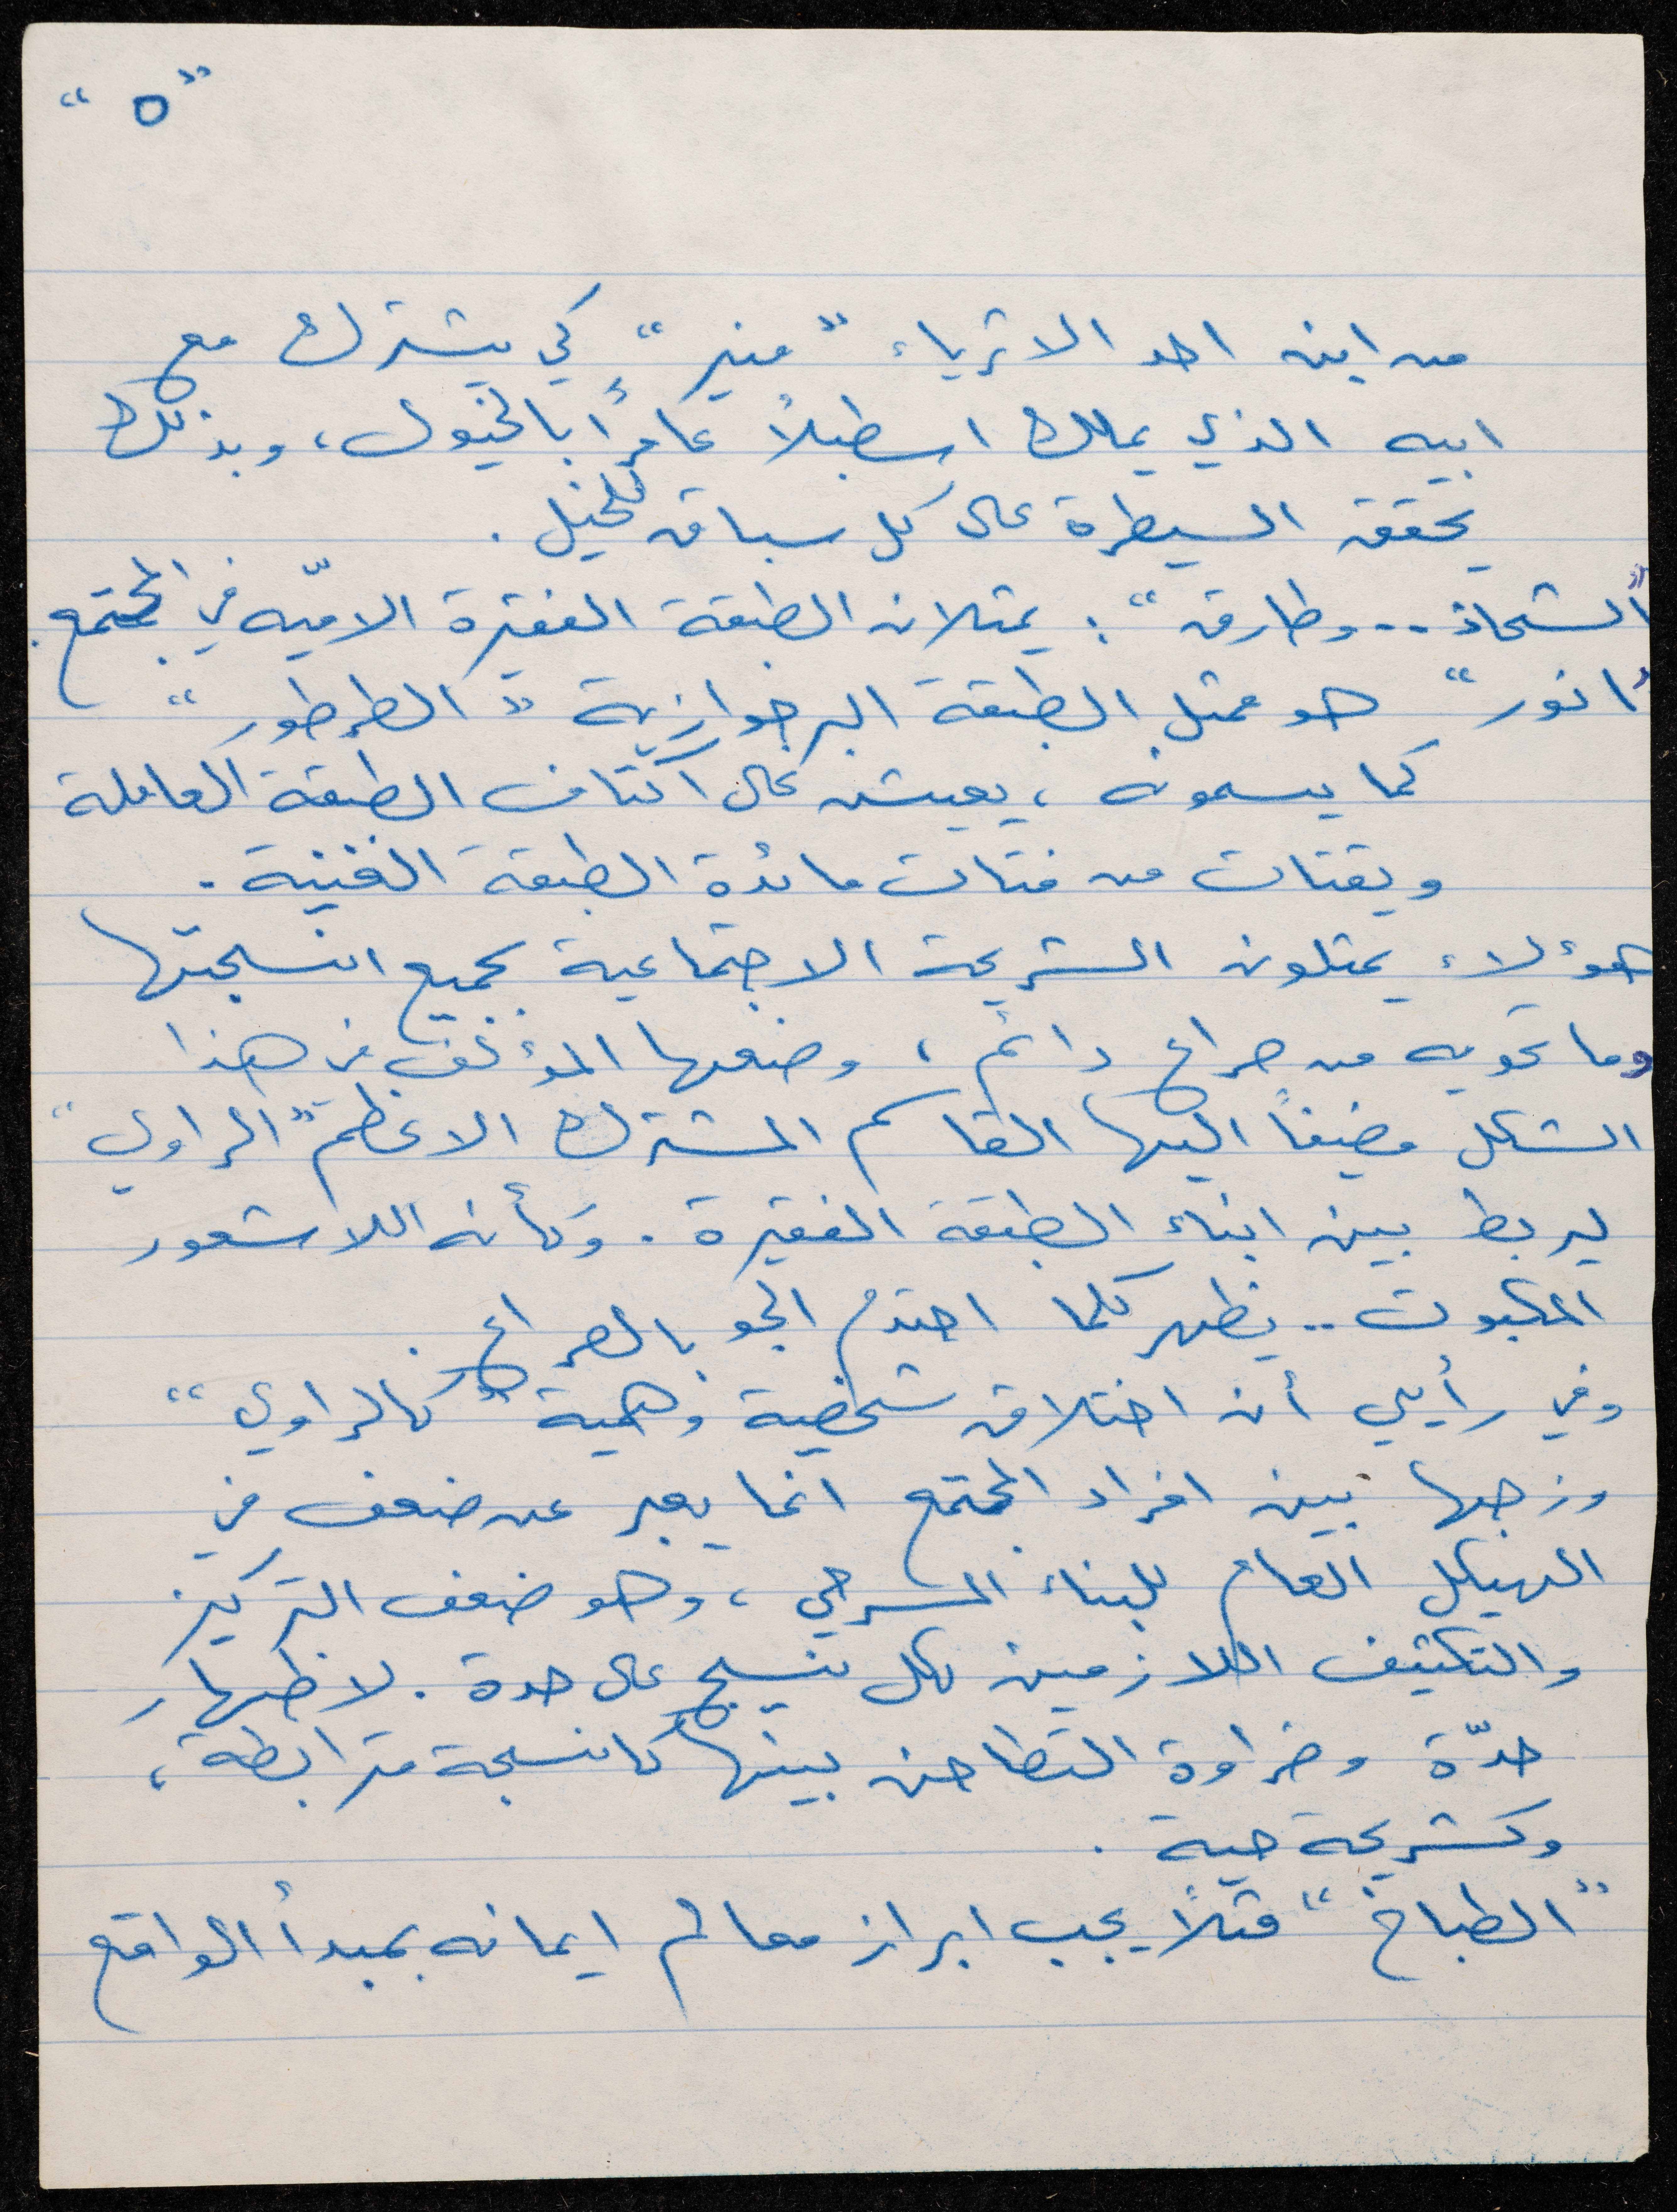 "٥"
من ابن احد الاثرياء "منير" كي يشترك مع
ابيه الذي يملك اسطبلاً عامراً بالخيول، وبذلك
يحقق السيطرة على كل سباق للخيل.
"الشحاذ.. وطارق": يمثلان الطبقة الفقيرة الاميّه في المجتمع.
"انور" هو ممثل الطبقة البرجوازية "الطرطور"
كما يسمونه، يعيش على اكتاف الطبقة العاملة
ويقتات من فتات مائدة الطبقة الغنية.
هؤلاء يمثلون الشريحة الاجتماعية بجميع انسجتها
وما تحويه من صراع دائم، وضعها المؤلف في هذا
الشكل مضيفاً اليها القاسم المشترك الاعظم "الراوي"
ليربط بين ابناء الطبقة الفقيرة. وكأنه اللاشعور
المكبوت.. يظهر كلما احتدم الجو بالصراع.
وفي رأيي أن اختلاق شخصية وهمية "كالراوي"
وزجها بين افراد المجتمع انما يعبر عن ضعف في
الهيكل العام للبناء المسرحي، وهو ضعف التركيز
والتكثيف اللازمين لكل نسيج على حدة. لاظهار
حدّة وضراوة التطاحن بينها كانسجة مترابطة،
وكشريحة حية.
"الطباخ" مثلاً يجب ابراز معالم ايمانه بمبدأ الواقع